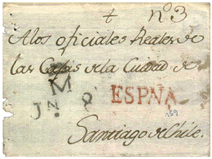 + nº3
A los oficiales Reales de
las Cajas de la Ciudad de
M
JN 8 ESPNA
Santiago de Chile.